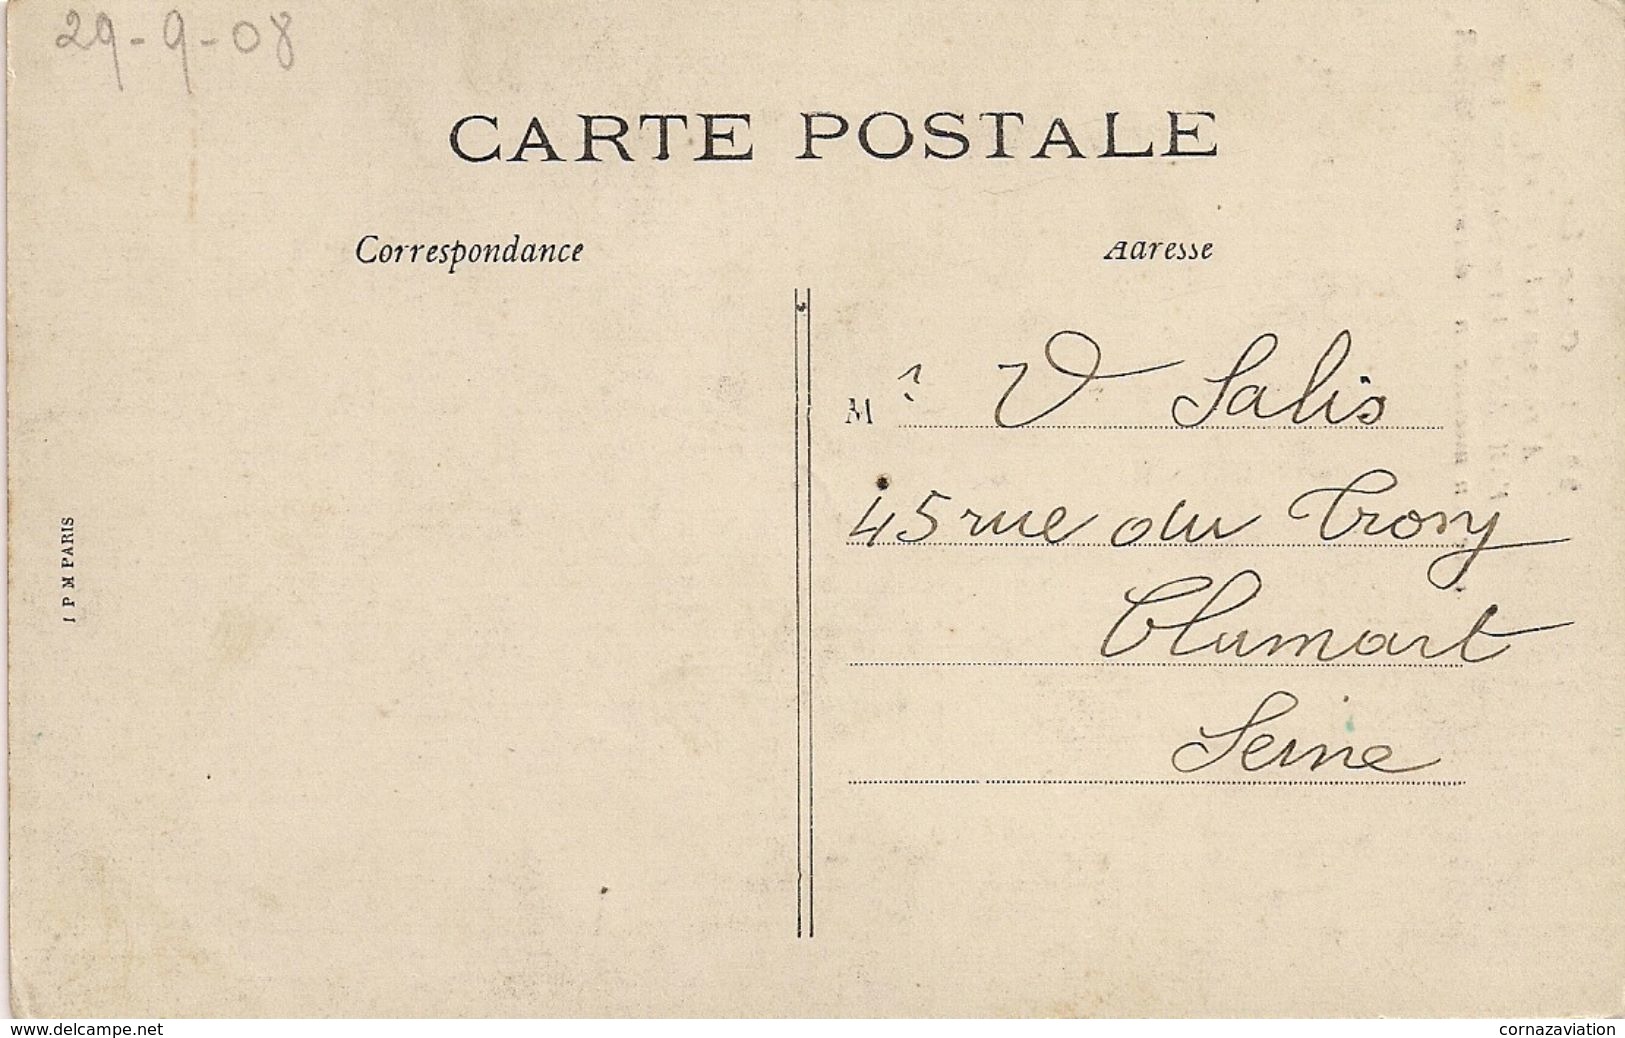 29-9-08
CARTE POSTALE
Correspondance
Adresse
Mr V Salis
45 rue du Trosy
Clamart
Seine
I P M PARIS
www.delcampe.net
cornazaviation